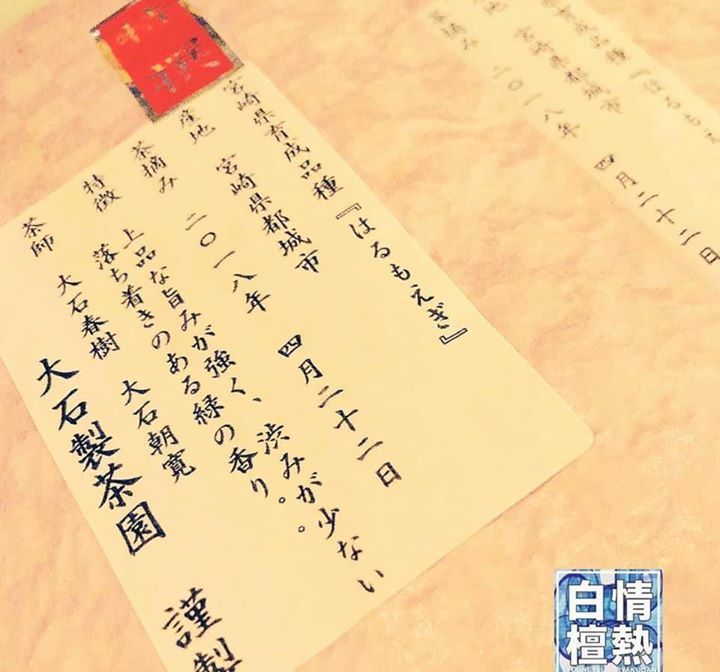 育成品種『はるもえ
宮崎県都城市
茶摘み 二〇一八年 四月二十二日
宮崎県育成品種『はるもえぎ』
産地 宮崎県都城市
茶摘み 二〇一八年 四月二十二日
特徴 上品な旨みが強く、渋みが少ない
落ち着きのある緑の香り。。
茶師 大石春樹 大石朝寛
大石製茶園 謹製
情熱
白檀